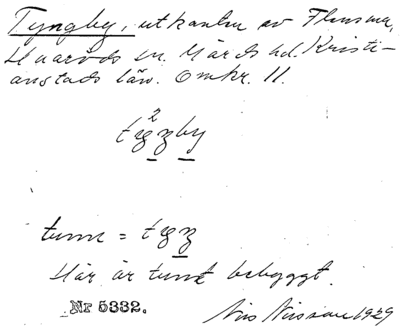 Tyngby, utkanten av Flensma,
Huaröds sn. Gärds hd. Kristi-
anstads län. Omkr. 11.
tunn =
Här är tunt bebyggt.
Nr 5332.
Nils Nilsson 1929